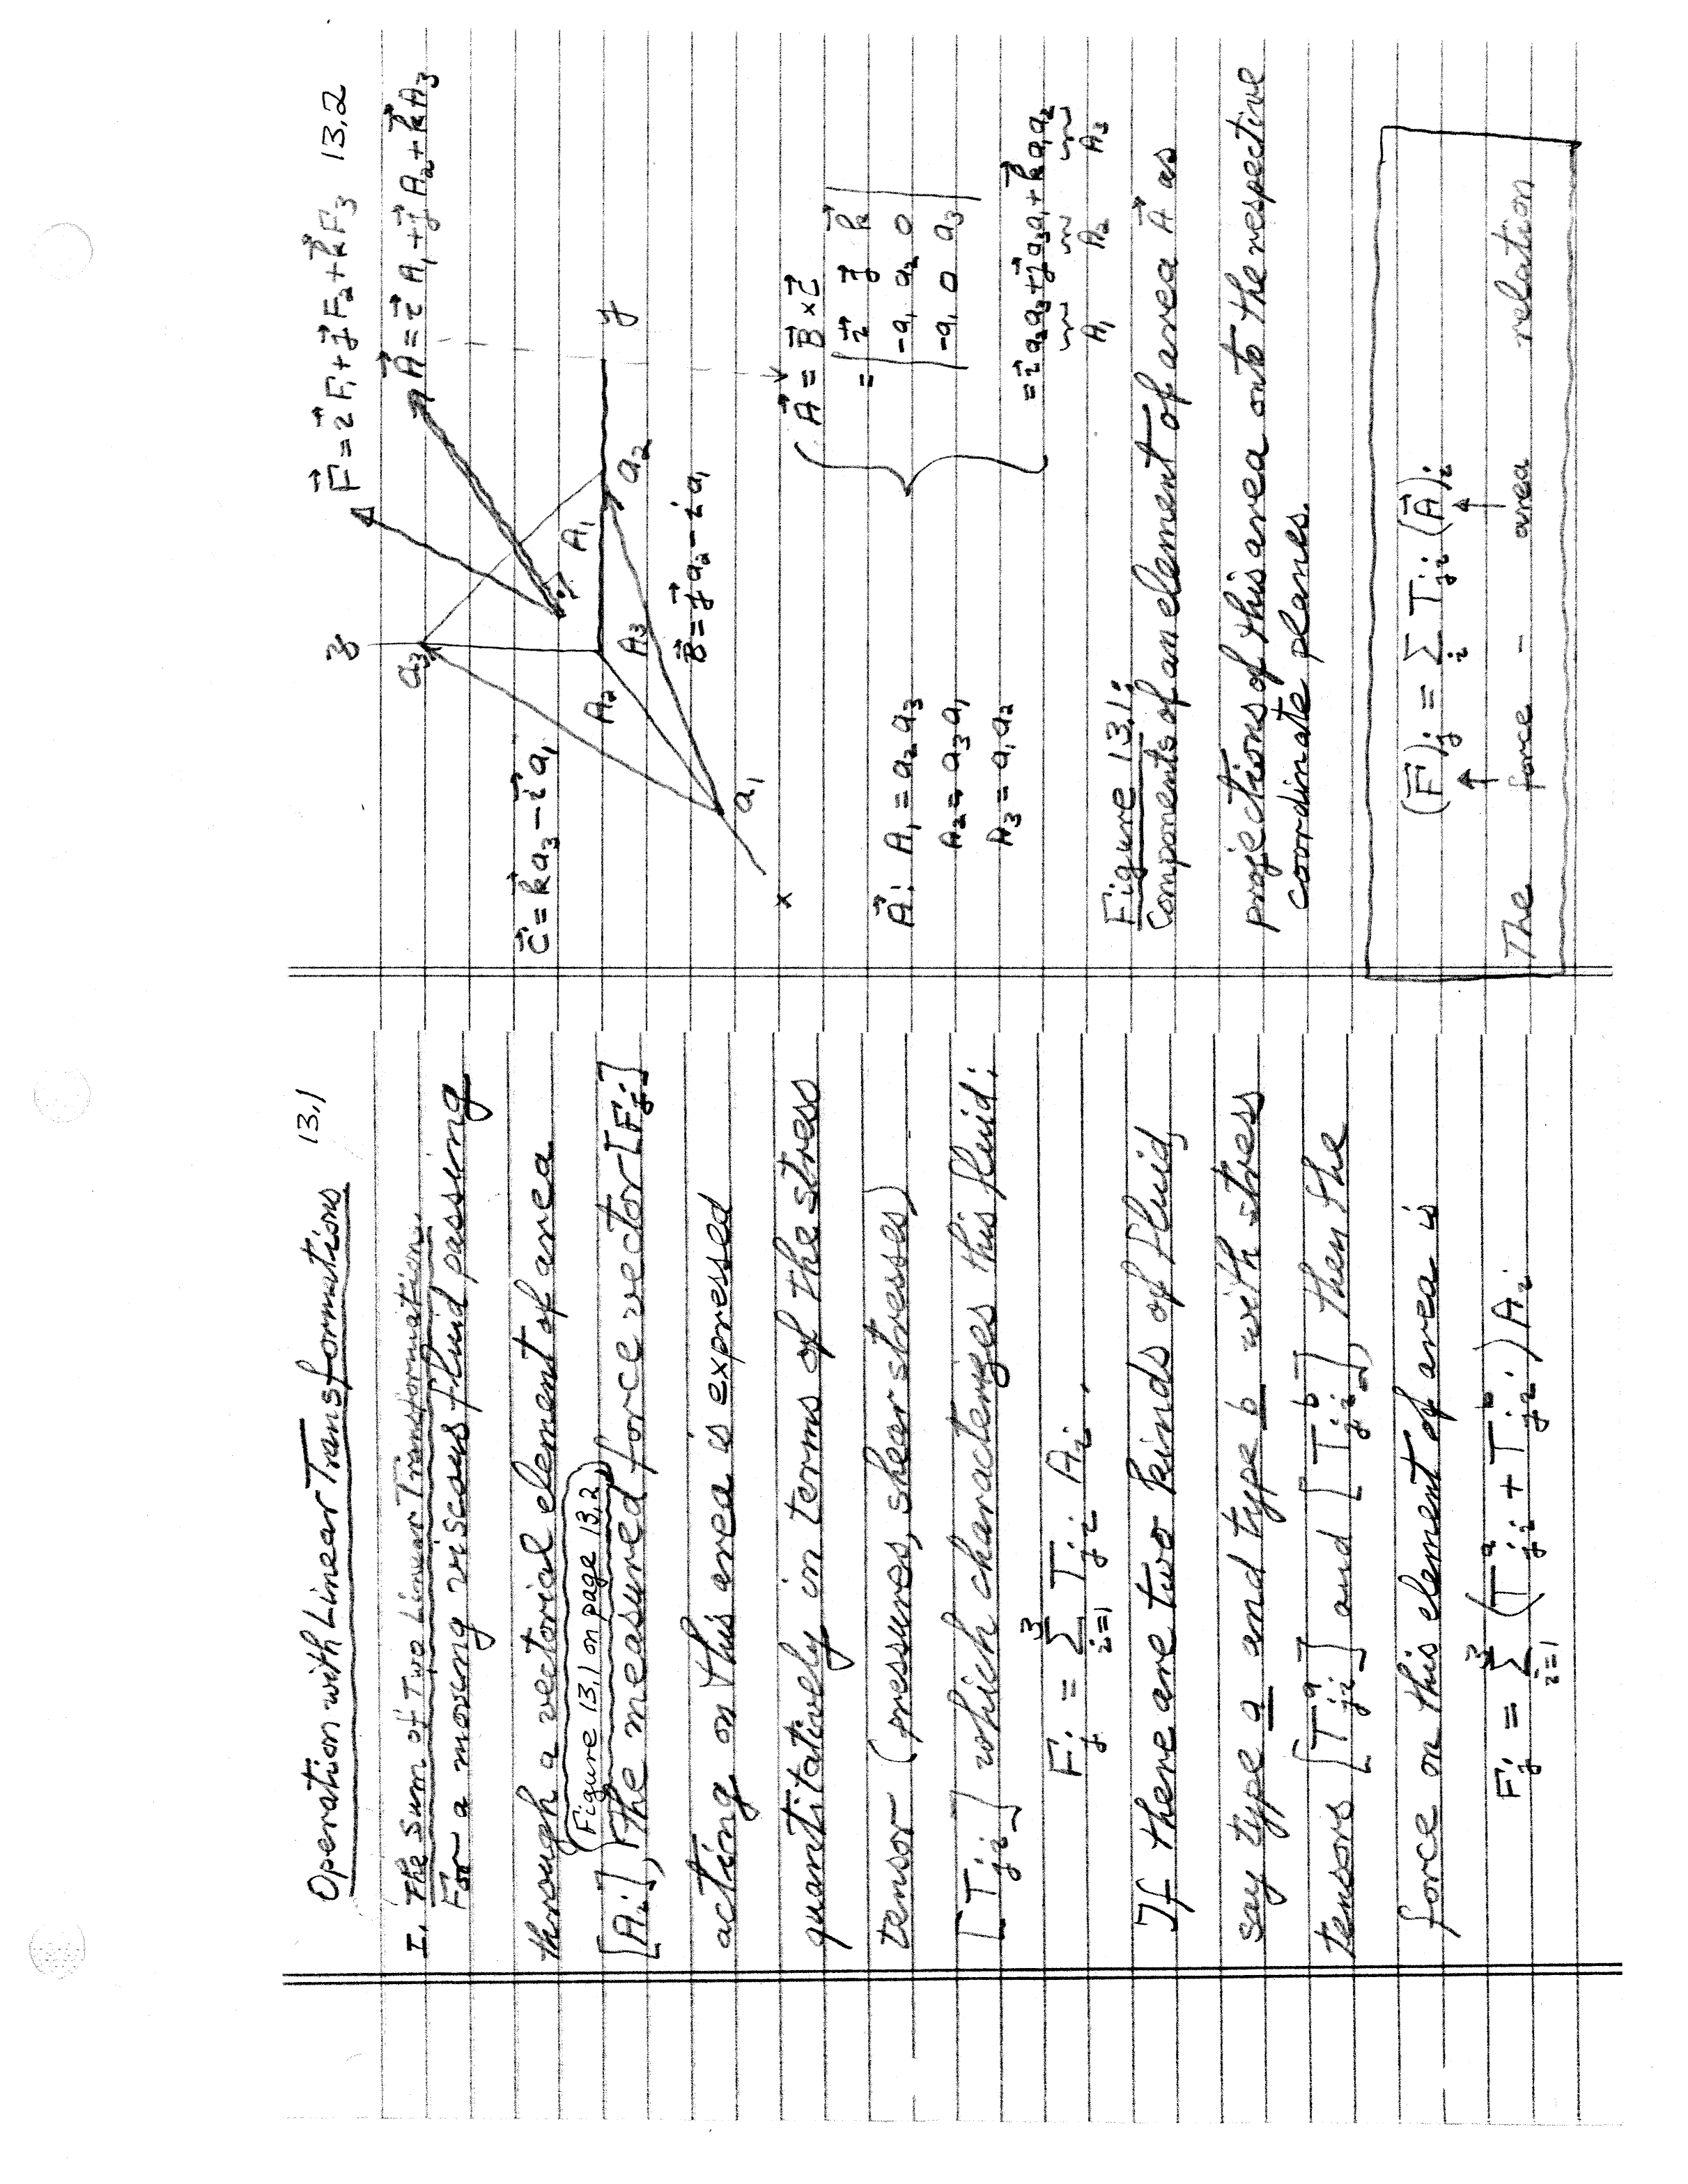 Operation with Linear Transformations 13.1
I. The Sum of Two Linear Transformation
For a moving viscous fluid passing
through a vectorial element of area
(Figure 13.1 on page 13.2)
[Aᵢ], the measured force vector [Fⱼ]
acting on this area is expressed
quantitatively in terms of the stress
tensor (pressures, shear stresses)
[Tⱼᵢ] which characterizes this fluid:
Fⱼ = Σᵢ₌₁³ Tⱼᵢ Aᵢ.
If there are two kinds of fluid,
say type a and type b with stress
tensors [Tⱼᵢᵃ] and [Tⱼᵢᵇ], then the
force on this element of area is
Fⱼ = Σᵢ₌₁³ (Tⱼᵢᵃ + Tⱼᵢᵇ) Aᵢ
F⃗ = i⃗F₁ + j⃗F₂ + k⃗F₃ 13.2
A⃗ = i⃗A₁ + j⃗A₂ + k⃗A₃
z
a₃
C⃗ = k⃗a₃ - i⃗a₁
A₂ A₁
y
A₃ a₂
B⃗ = j⃗a₂ - i⃗a₁
a₁
x
A⃗ = B⃗ × C⃗
= | i⃗ j⃗ k⃗ |
-a₁ a₂ 0
| -a₁ 0 a₃ |
= i⃗a₂a₃ + j⃗a₃a₁ + k⃗a₁a₂
A₁ A₂ A₃
A⃗: A₁ = a₂a₃
A₂ = a₃a₁
A₃ = a₁a₂
Figure 13.1:
Components of an element of area A⃗ as
projections of this area onto the respective
coordinate planes.
(F⃗)ⱼ = Σᵢ Tⱼᵢ (A⃗)ᵢ
The force - area relation